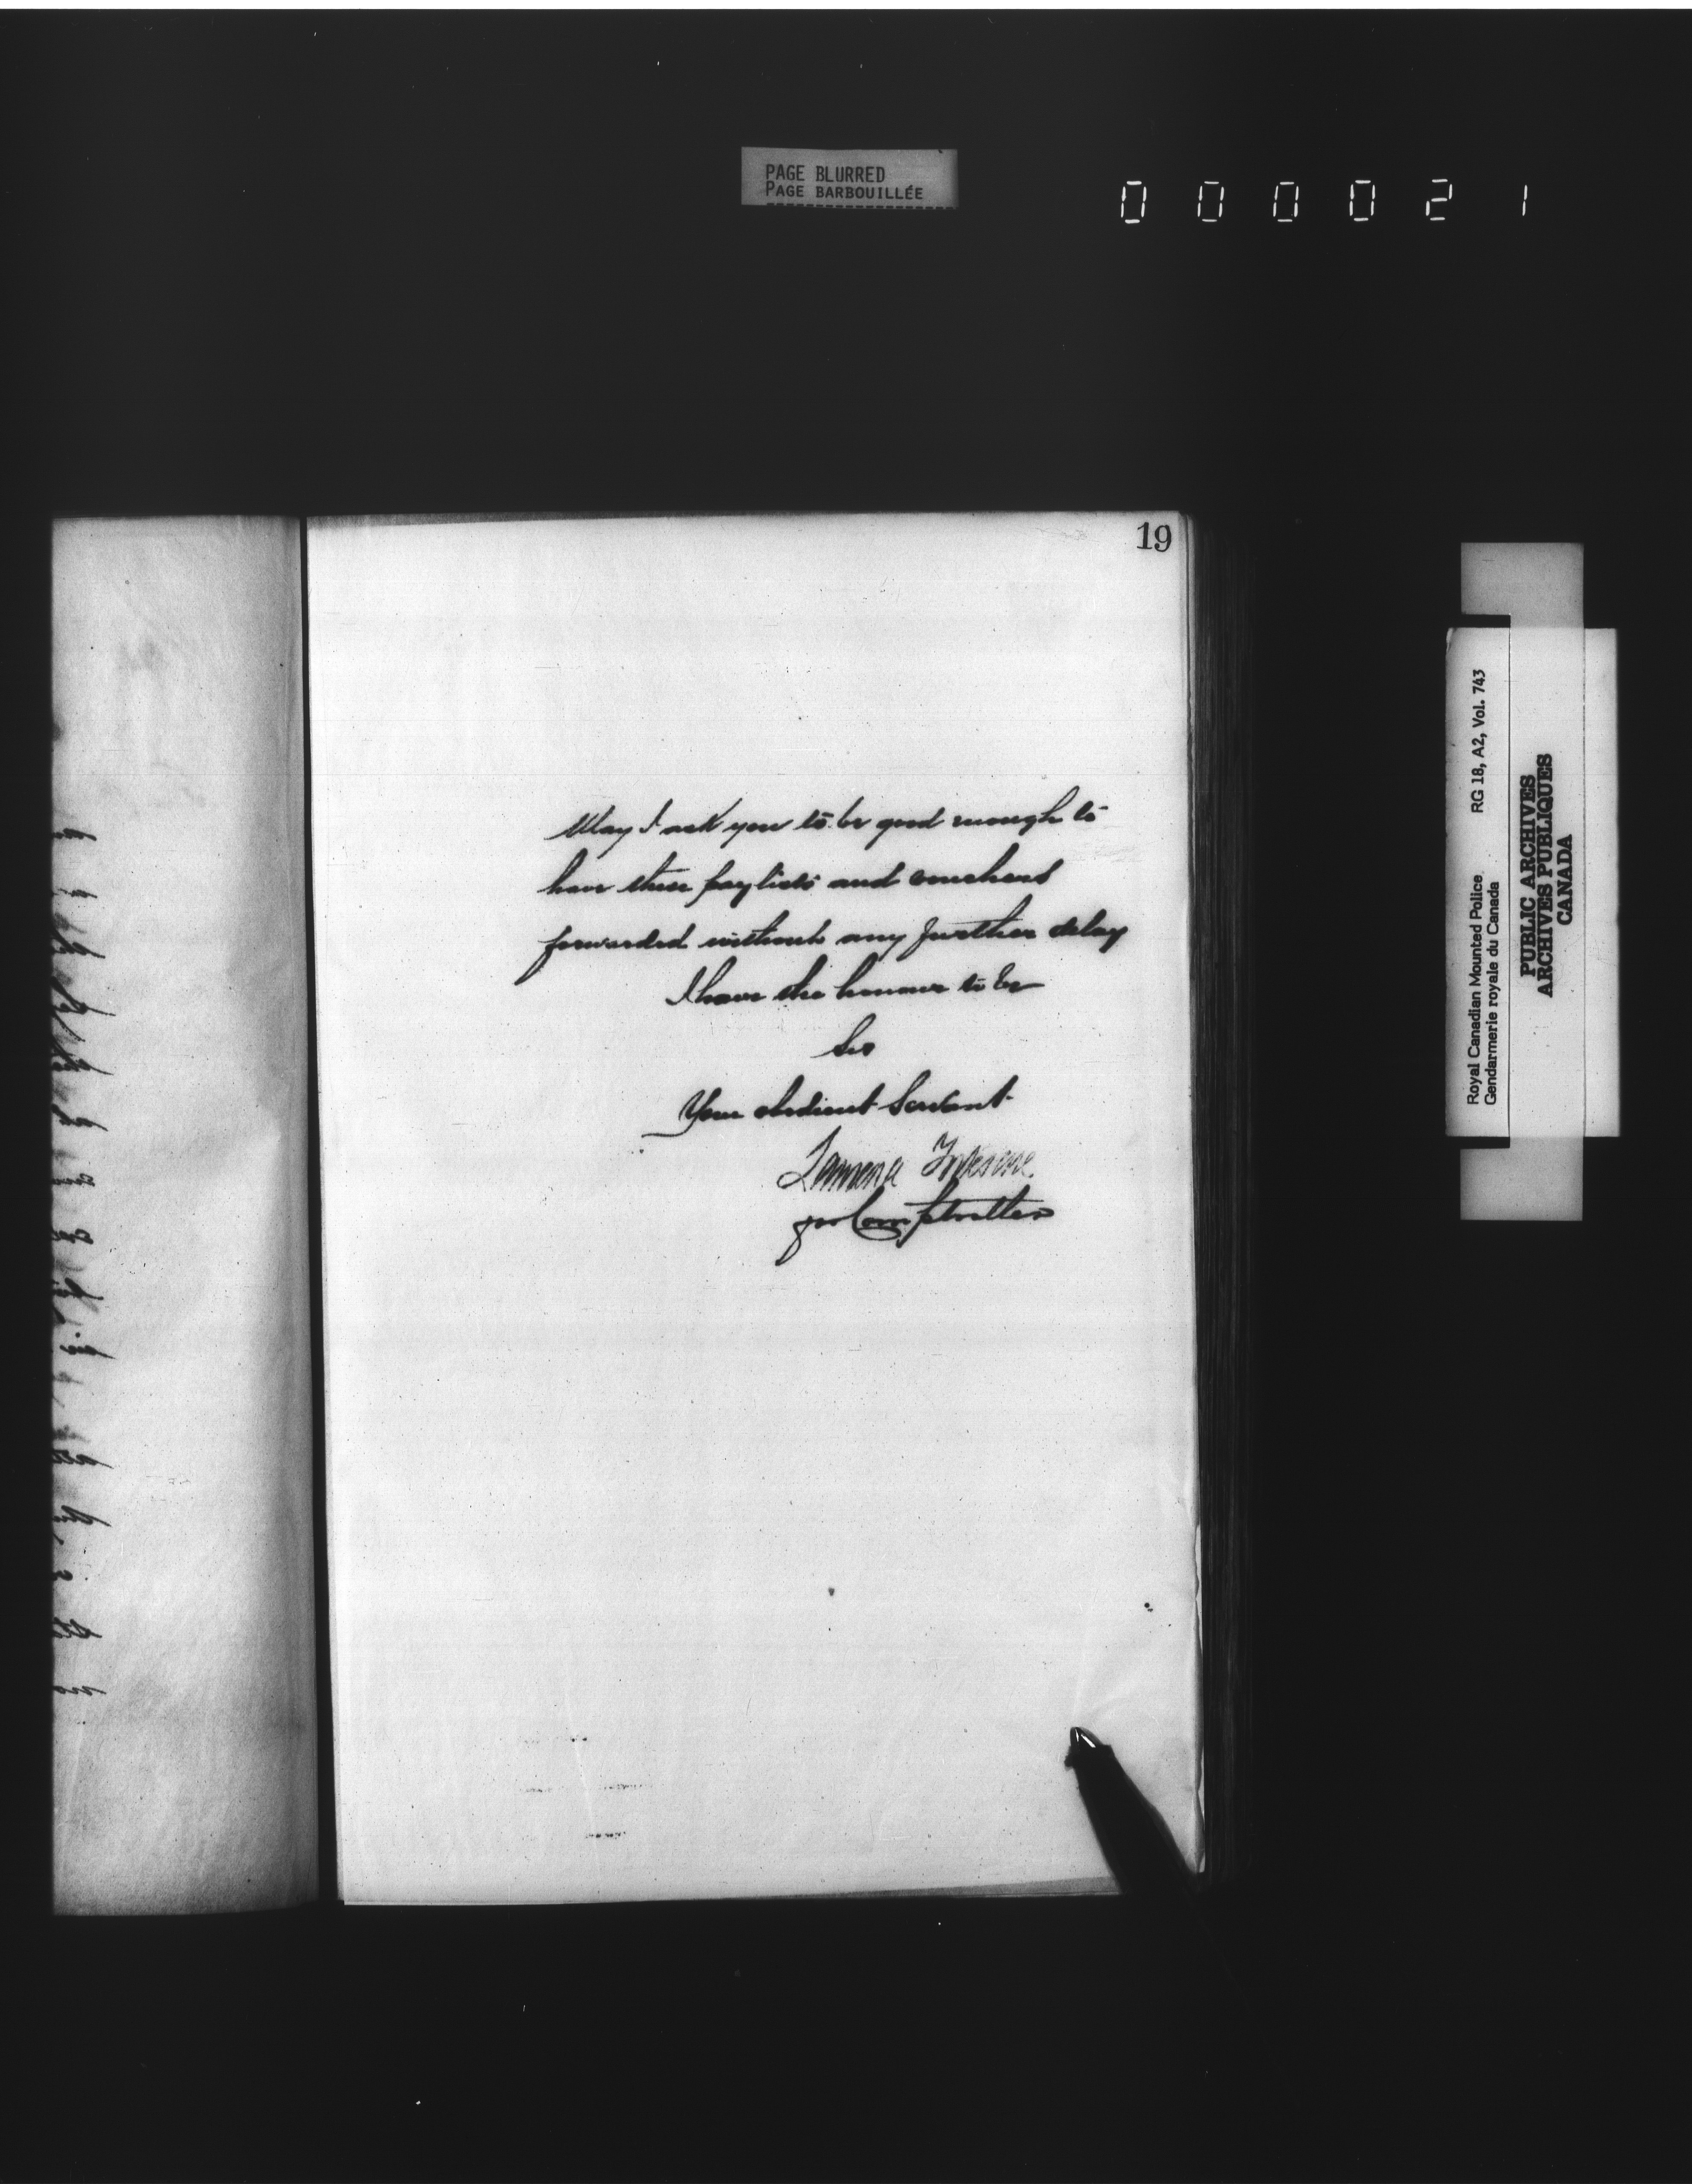 PAGE BLURRED
PAGE BARBOUILLÉE
0 0 0 0 2 1
19
May I ask you to be good enough to
have these paylists and vouchers
forwarded without any further delay
I have the honour to be
Sir
Your obedient Servant
for Comptroller
Royal Canadian Mounted Police RG 18, A2, Vol. 743
Gendarmerie royale du Canada
PUBLIC ARCHIVES
ARCHIVES PUBLIQUES
CANADA